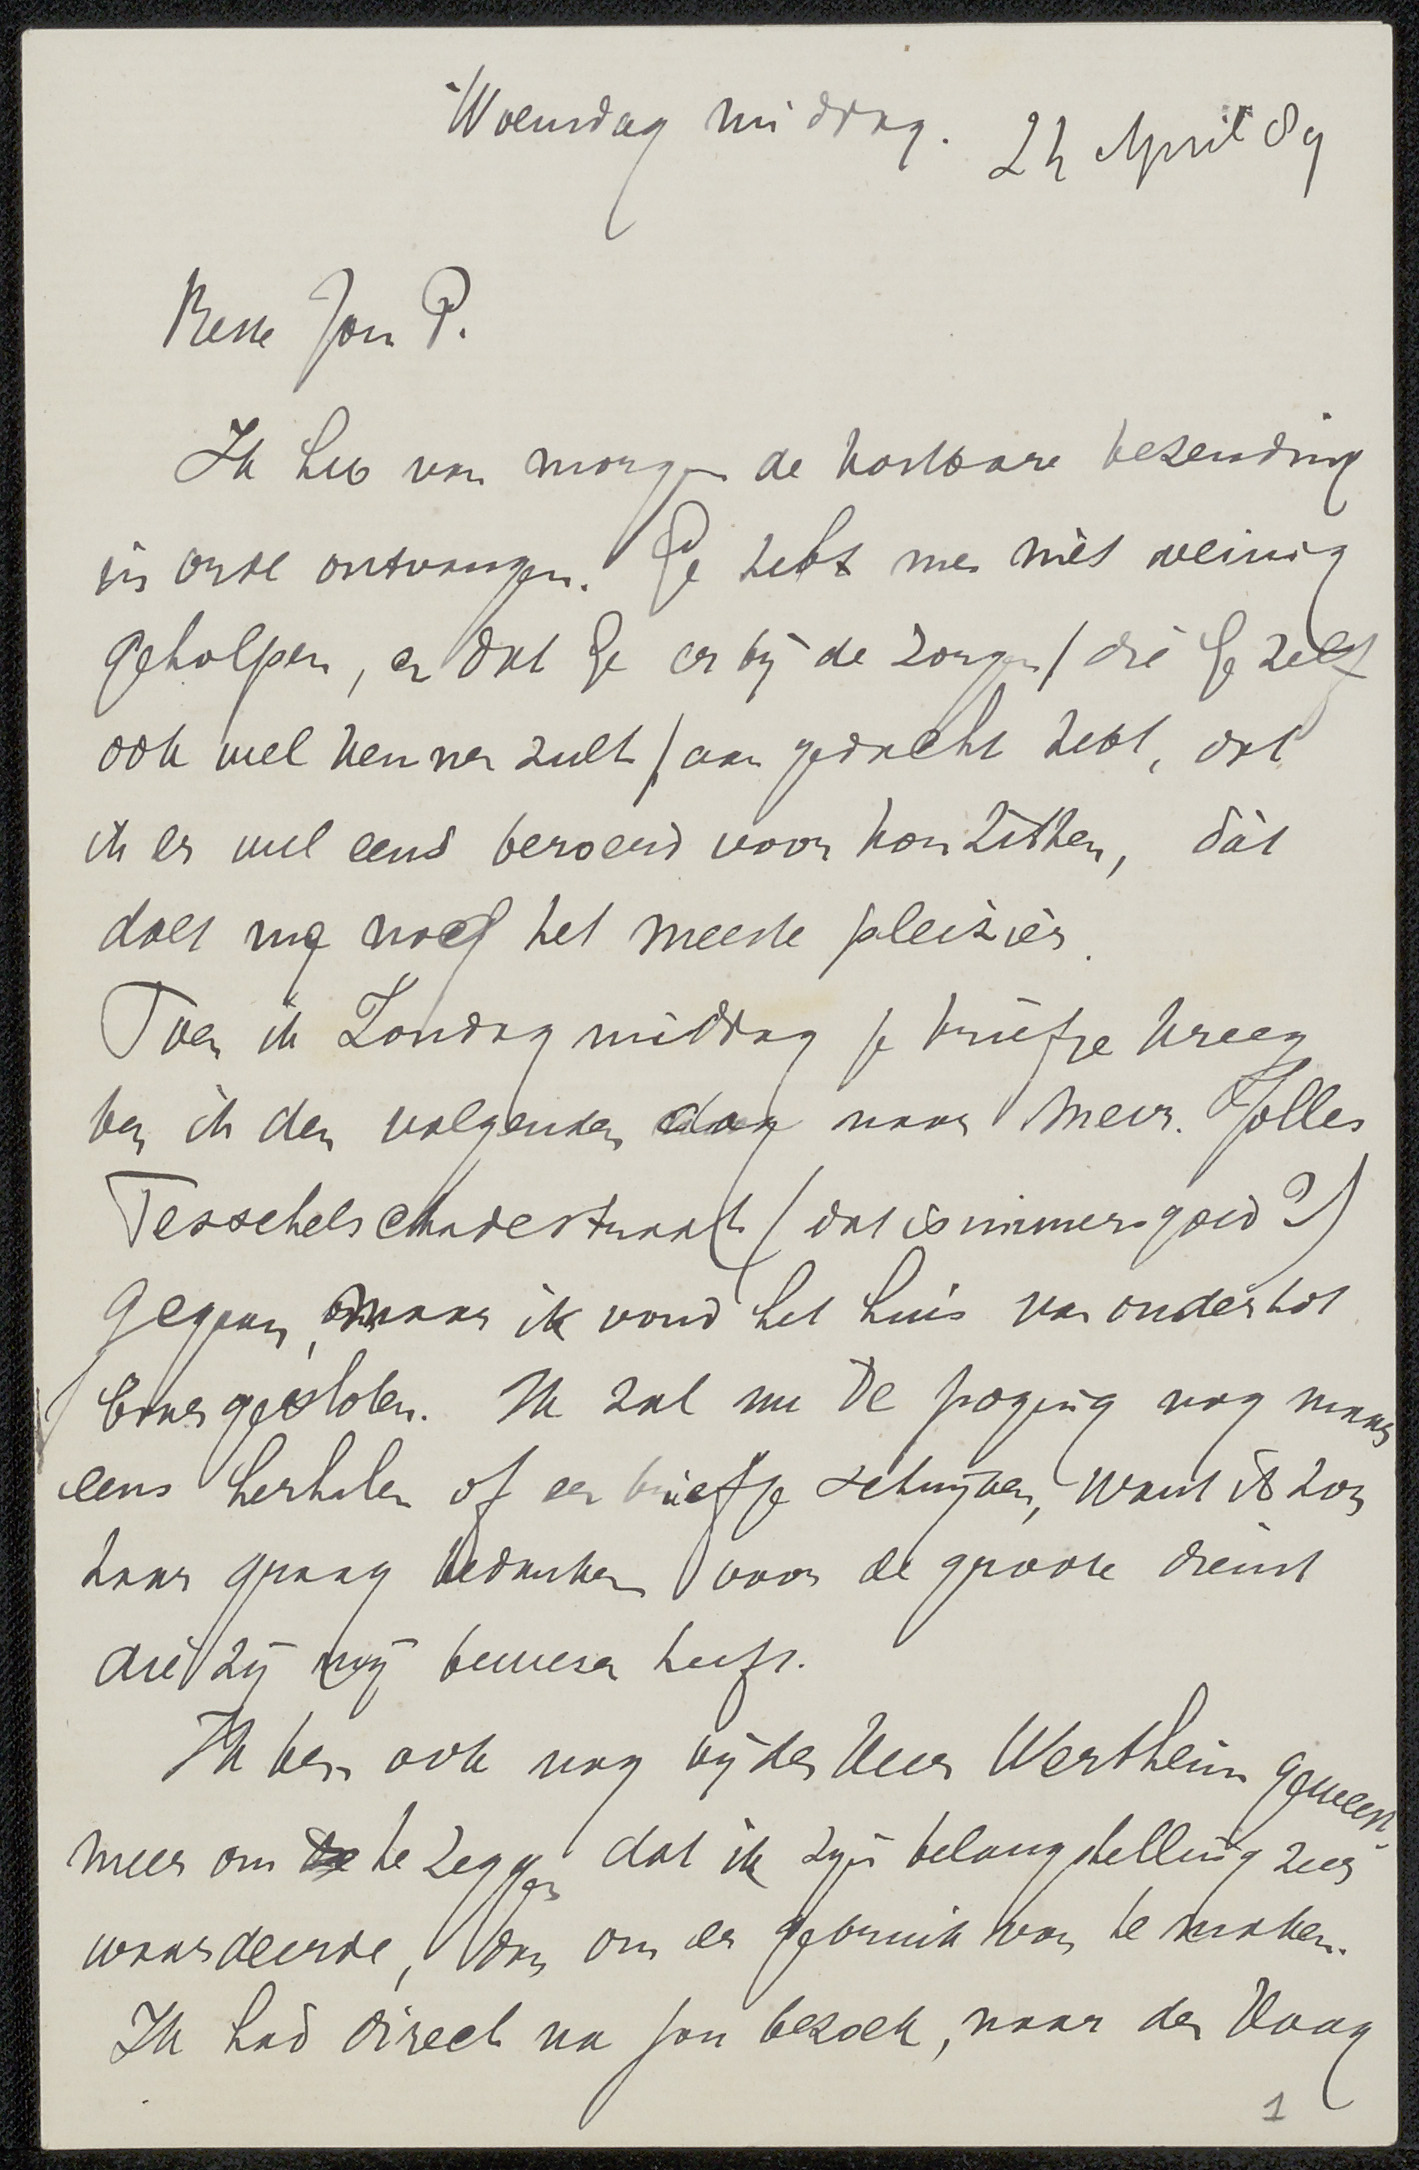 Woensdag middag. 24 April 89
Beste Jan P.
Ik heb van morgen de kostbare bezending
in orde ontvangen. Je hebt me niet weinig
geholpen, en dat je er bij de zorgen (die je zelf
ook wel kennen zult) aan gedacht hebt, dat
ik er wel eens beroerd voor kon zitten, dàt
doet my nog het meeste pleizier.
Toen ik Zondag middag je briefje kreeg
ben ik den volgenden dag naar Mevr. Jolles
Tesselschadestraat (dat is immers goed?)
gegaan, maar ik vond het huis van onder tot
boven gesloten. Ik zal nu de poging nog maar
eens herhalen of een briefje schrijven, want ik zou
haar graag bedanken voor de groote dienst
die zij mij bewezen heeft.
Ik ben ook nog bij den Heer Wertheim geweest
meer om te zeggen dat ik zijn belangstelling zeer
waardeerde, dan om er gebruik van te maken.
Ik had direct na jou bezoek, naar den Haag
1